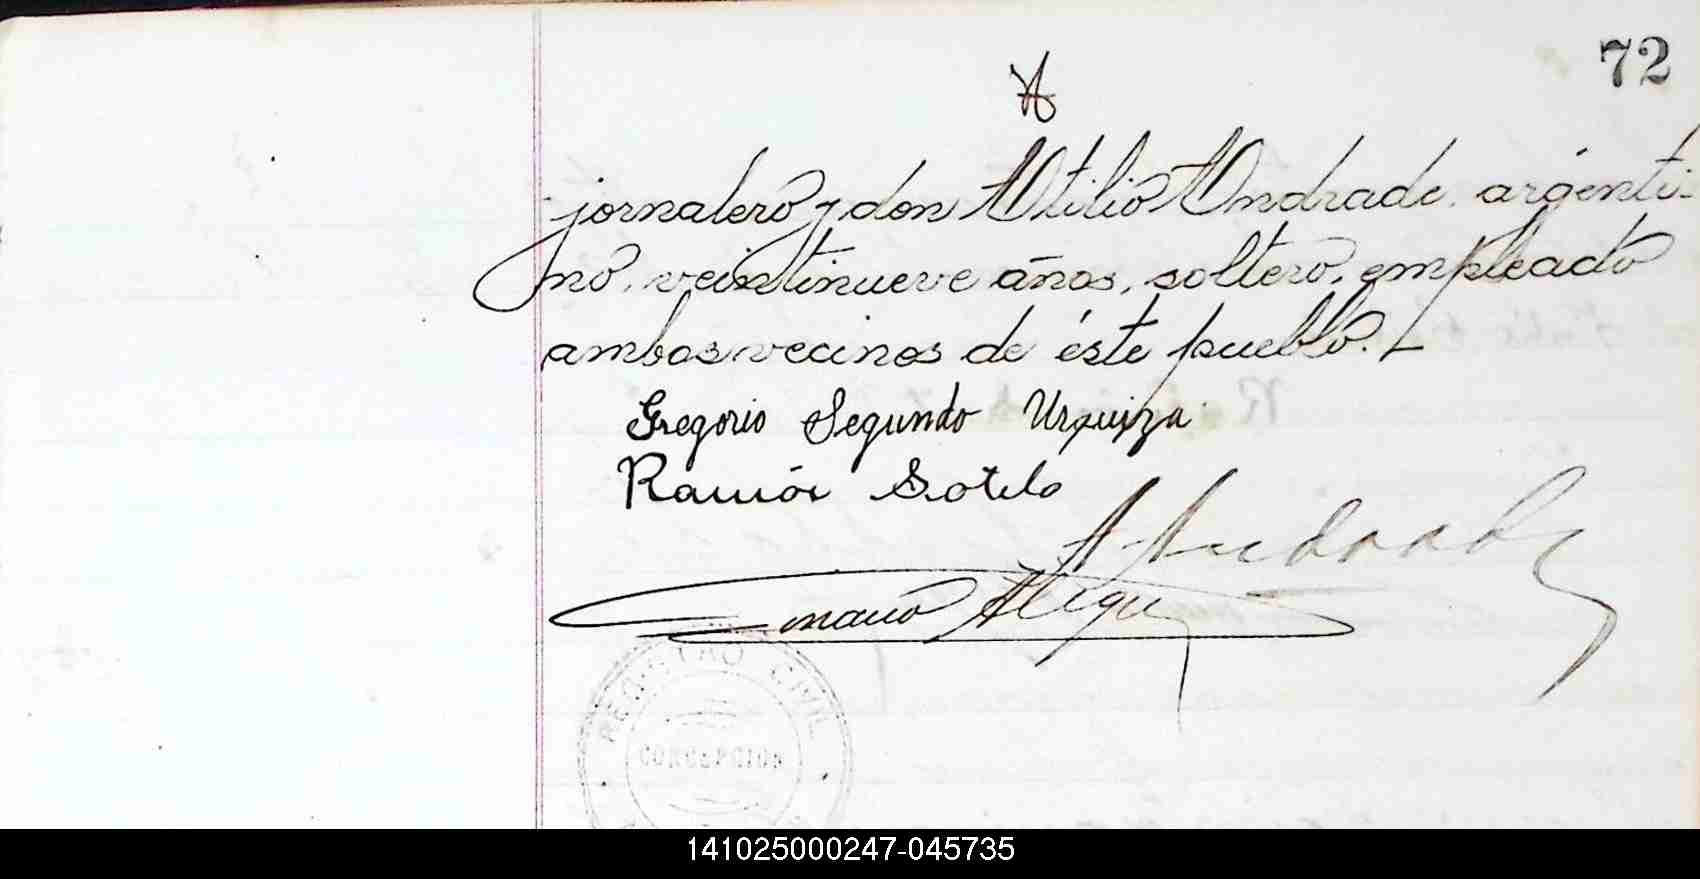 72
jornalero y don Atilio Andrade, argenti-
no, veintinueve años, soltero, empleado
ambos vecinos de éste pueblo.
Gregorio Segundo Urquiza
Ramón Sotelo
A Andrade
REGISTRO CIVIL
CONCEPCION
141025000247-045735